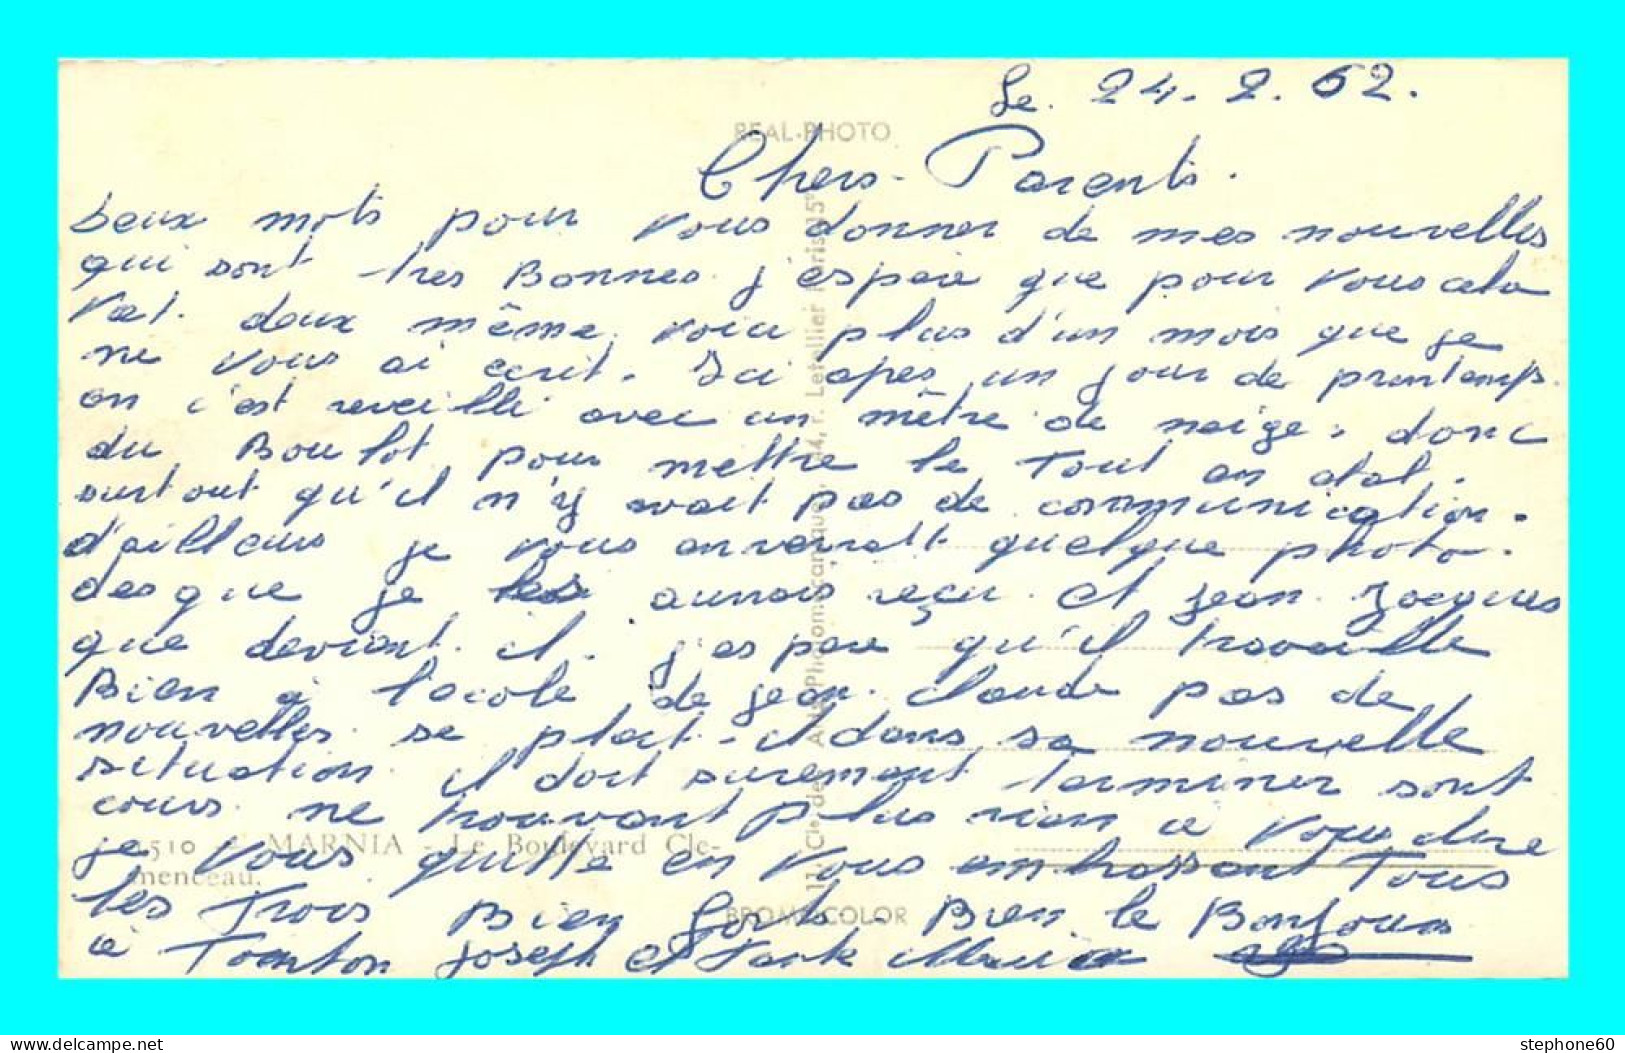 Le. 24. 2. 62.
REAL-PHOTO
Chers Parents.
Deux mots pour vous donner de mes nouvelles
qui sont tres Bonnes. j'espere que pour vous cela
vat. deux même, voici plus d'un mois que je
ne vous ai ecrit. Ici apes un jour de printemps.
on c'est reveille avec un mètre de neige. donc
du Boulot pour mettre le tout en etat.
surtout qu'il n'y avait pas de communication.
d'ailleurs je vous enverrait quelque photo.
des que je les aurais reçu. et jean. Jacques
que devient. il. j'espere qu'il travaille
Bien a l'ecole de jean. claude pas de
nouvelles. se plait-il dans sa nouvelle
situation. il doit surement terminer sont
cours. ne trouvant plus rien a vous dire
je vous quitte en vous embrassant Tous
les Trois Bien forts. Bien le Bonjour
a Tonton joseph et Marie
510 - MARNIA - Le Boulevard Cle-
menceau.
BROMOCOLOR
Cie des Arts Photomécaniques, r. Letellier Paris 15e
stephone60